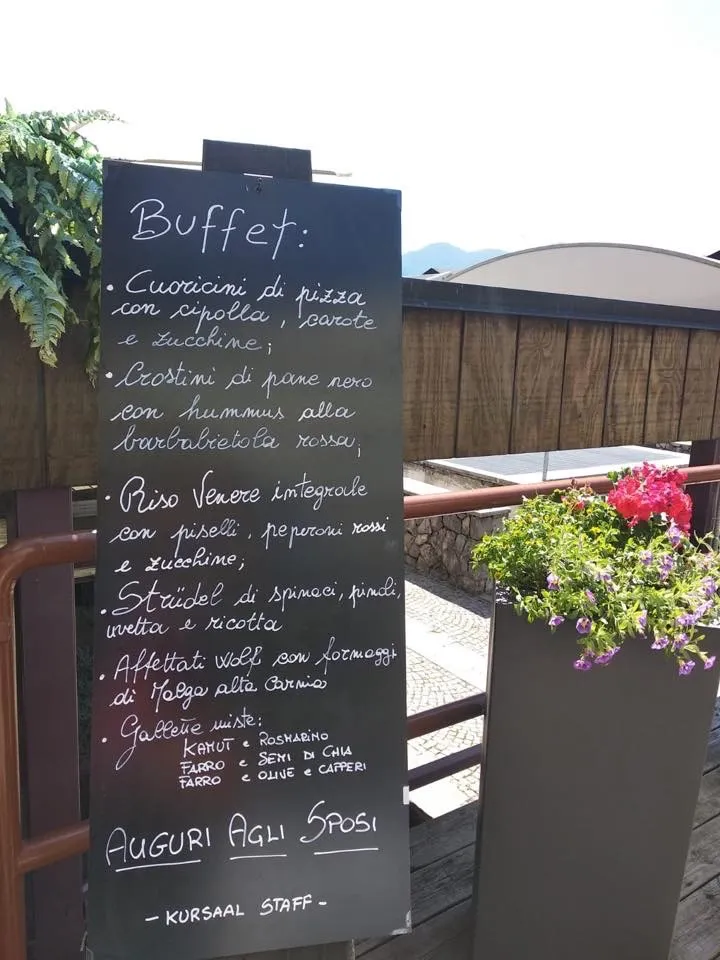 Buffet:
• Cuoricini di pizza
con cipolla, carote
e zucchine;
• Crostini di pane nero
con hummus alla
barbabietola rossa;
• Riso Venere integrale
con piselli, peperoni rossi
e zucchine;
• Strüdel di spinaci, pinoli,
uvetta e ricotta
• Affettati Wolf con formaggi
di Malga alta Carnia
• Gallette miste:
KAMUT e ROSMARINO
FARRO e SEMI DI CHIA
FARRO e OLIVE e CAPPERI
AUGURI AGLI SPOSI
- KURSAAL STAFF -